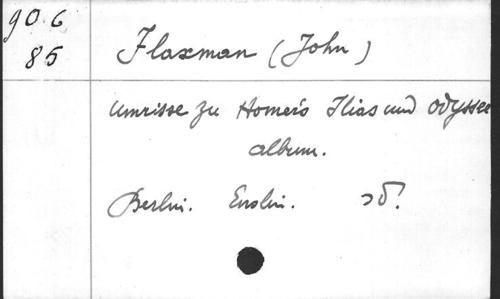 90.6
85
Flaxman (John)
Umrisse zu Homer's Ilias und Odyssee
album.
Berlin. Enslin.